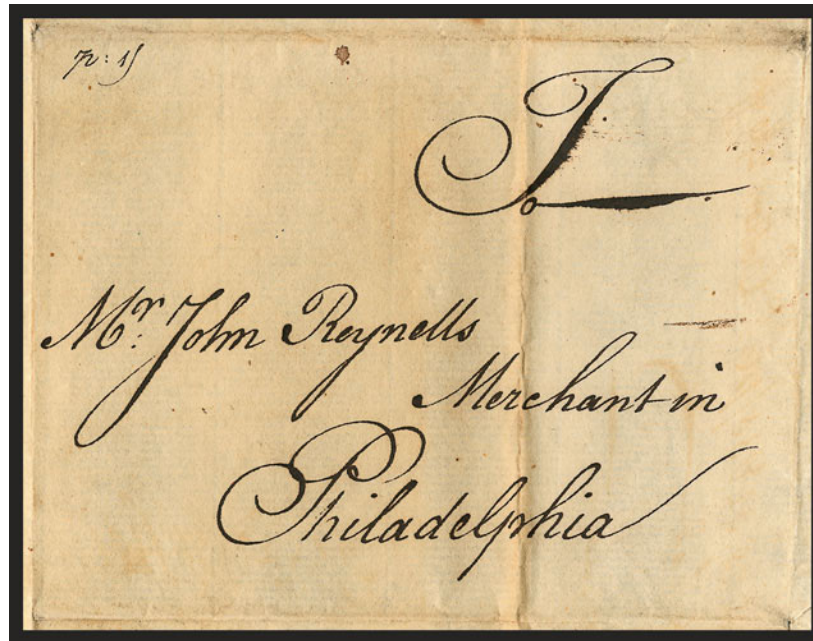 To
Mr. John Reynells
Merchant in
Philadelphia